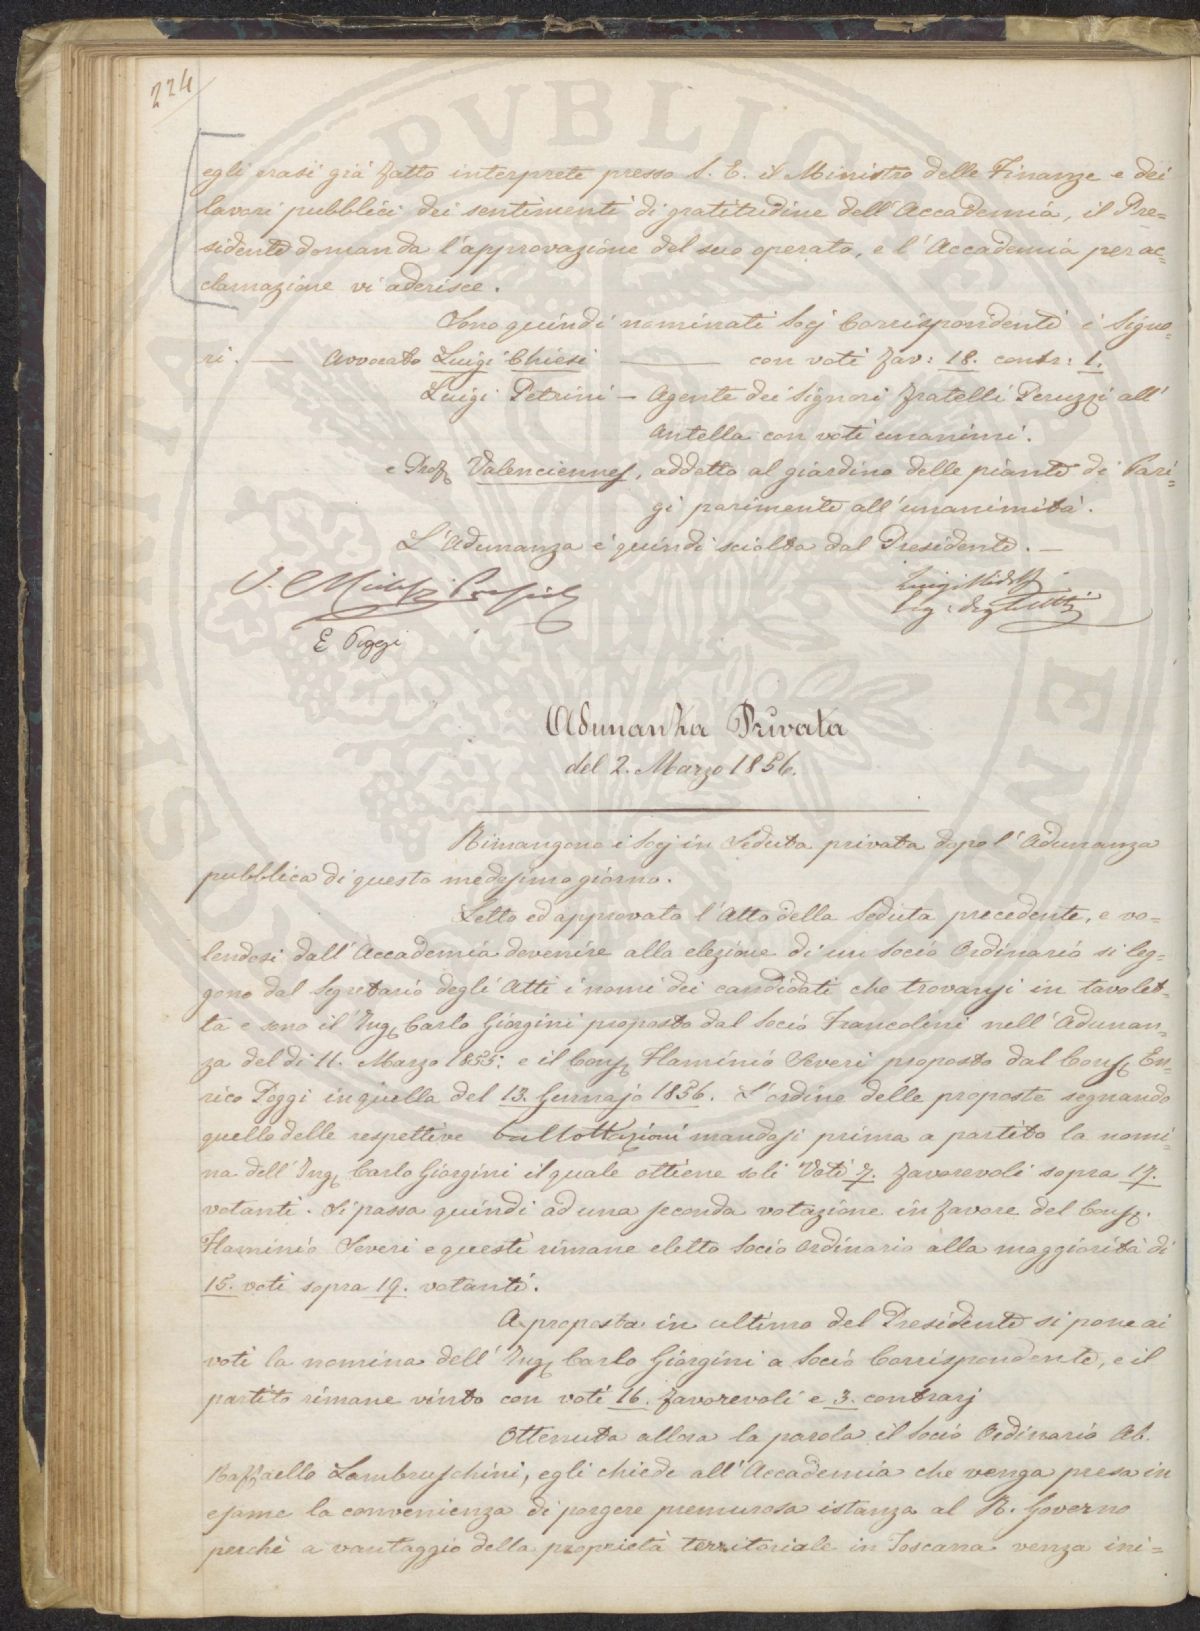 224
egli erasi già fatto interprete presso S. E. il Ministro delle Finanze e dei
lavori pubblici dei sentimenti di gratitudine dell'Accademia, il Pre=
sidente domanda l'approvazione del suo operato, e l'Accademia per ac=
clamazione vi aderisce.
Sono quindi nominati Socj Corrispondenti i Signo=
ri. — Avvocato Luigi Chiesi — con voti fav: 18. contr: 1.
Luigi Petrini — Agente dei Signori Fratelli Peruzzi all'
Antella con voti unanimi.
e Prof. Valenciennes, addetto al giardino delle piante di Pari=
gi parimente all'unanimità.
L'Adunanza è quindi sciolta dal Presidente. —
Luigi Ridolfi
E Poggi
Adunanza Privata
del 2. Marzo 1856.
Rimangono i Socj in Seduta privata dopo l'Adunanza
pubblica di questo medesimo giorno.
Letto ed approvato l'Atto della Seduta precedente, e vo=
lendosi dall'Accademia devenire alla elezione di un Socio Ordinario si leg=
gono dal Segretario degli Atti i nomi dei candidati che trovansi in tavolet=
ta e sono il Ing. Carlo Giorgini proposto dal Socio Francolini nell'Adunan=
za del dì 11. Marzo 1855: e il Cons. Flaminio Severi proposto dal Cons. En=
rico Poggi in quella del 13. Gennajo 1856. L'ordine delle proposte segnando
quello delle respettive ballottazioni mandasi prima a partito la nomi=
na dell'Ing. Carlo Giorgini il quale ottiene soli Voti 7. favorevoli sopra 19.
votanti. Si passa quindi ad una seconda votazione in favore del Cons.
Flaminio Severi e questi rimane eletto Socio Ordinario alla maggiorità di
15. voti sopra 19. votanti.
A proposta in ultimo del Presidente si pone ai
voti la nomina dell'Ing. Carlo Giorgini a Socio Corrispondente, e il
partito rimane vinto con voti 16. favorevoli e 3. contrarj
Ottenuta allora la parola il Socio Ordinario Ab.
Raffaello Lambruschini, egli chiede all'Accademia che venga presa in
esame la convenienza di porgere premurosa istanza al R. Governo
perchè a vantaggio della proprietà territoriale in Toscana venga ini=